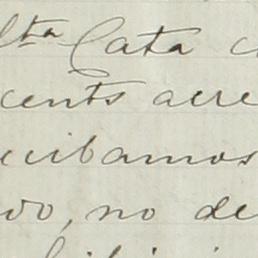 lta Cata c
cents acre
cibamos
do, no de